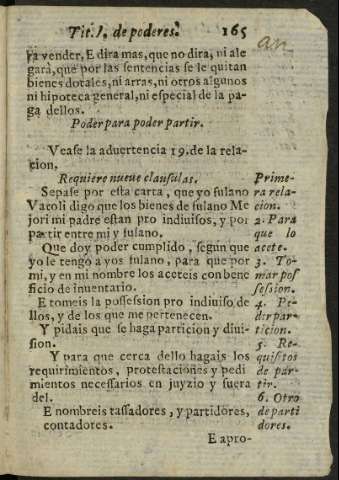 Tit. I, de poderes. 165
an
ra vender, E dira mas, que no dira, ni ale
gara, que por las sentencias se le quitan
bienes dotales, ni arras, ni otros algunos
ni hipoteca general, ni especial de la pa-
ga dellos.
Poder para poder partir.
Vease la aduertencia 19. de la rela-
cion.
Requiere nueue clausulas.
Sepase por esta carta, que yo fulano
Vacoli digo que los bienes de fulano Me
jori mi padre estan pro indiuisos, y por
partir entre mi y fulano.
Que doy poder cumplido, segun que
yo le tengo a vos fulano, para que por
mi, y en mi nombre los aceteis con bene
ficio de inuentario.
E tomeis la possession pro indiuiso de
llos, y de los que me pertenecen.
Y pidais que se haga particion y diui-
sion.
Y para que cerca dello hagais los
requirimientos, protestaciones y pedi
mientos necessarios en juyzio y fuera
del.
E nombreis tassadores, y partidores,
contadores.
E apro-
Prime-
ra rela-
cion.
2. Para
que lo
acete.
3. To-
mar pos
session.
4. Pe-
dir par-
ticion.
5. Re-
quisitos
de par-
tir.
6. Otro
de parti
dores.